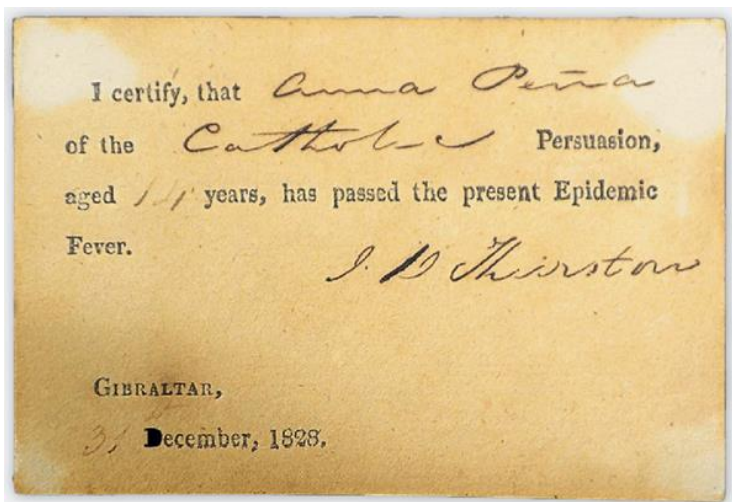 I certify, that Anna Peña
of the Catholic Persuasion,
aged 14 years, has passed the present Epidemic
Fever.
J. D Thurston
GIBRALTAR,
31 December, 1828.